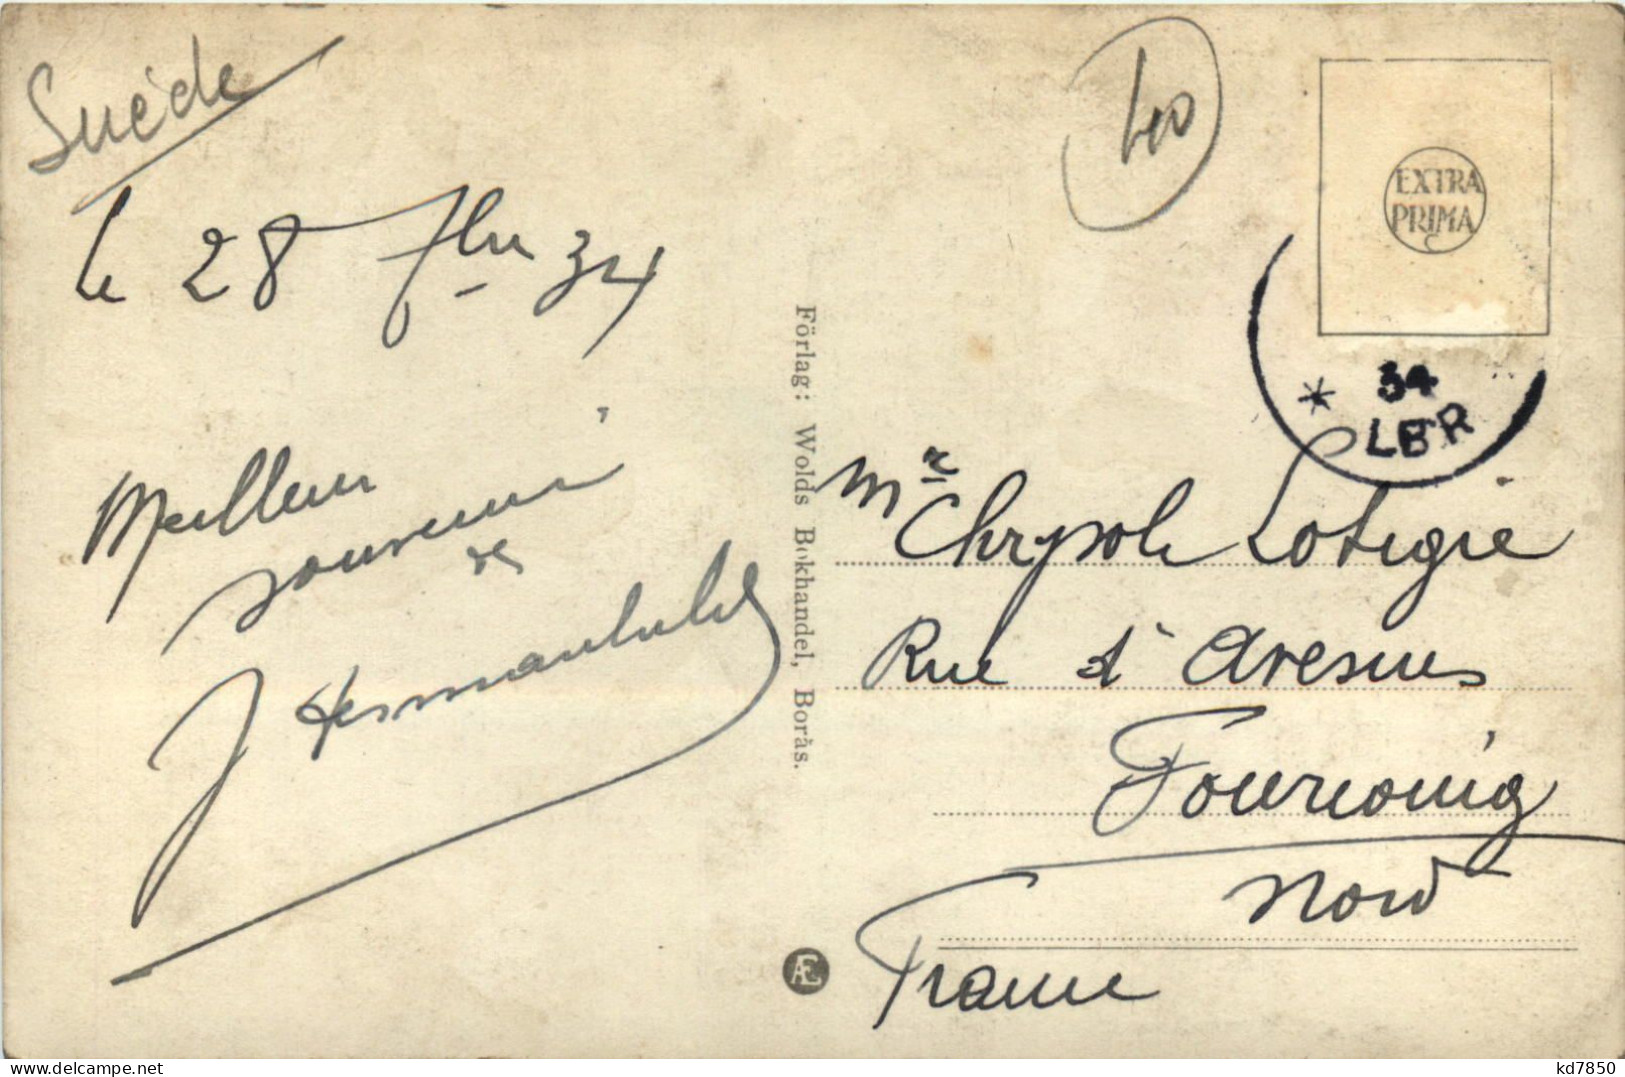 Suéde
le 28 Jher 34
Meilleur
souvenir
de
J Hermant
Förlag: Wolds Bokhandel, Borås.
Æ
400
EXTRA
PRIMA
* 34
LBR
Mr
Chrysole Lotigie
Rue d'Avesnes
Fourmies
Nord
France
kd7850